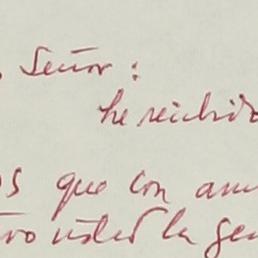 Señor:
he recibido
os que con am
tro usted la gen